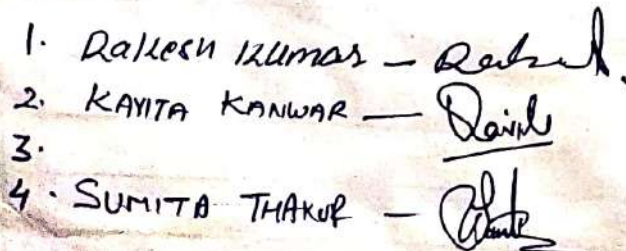 1. Rakesh Kumar –
2. KAVITA KANWAR —
3.
4. SUMITA THAKUR –